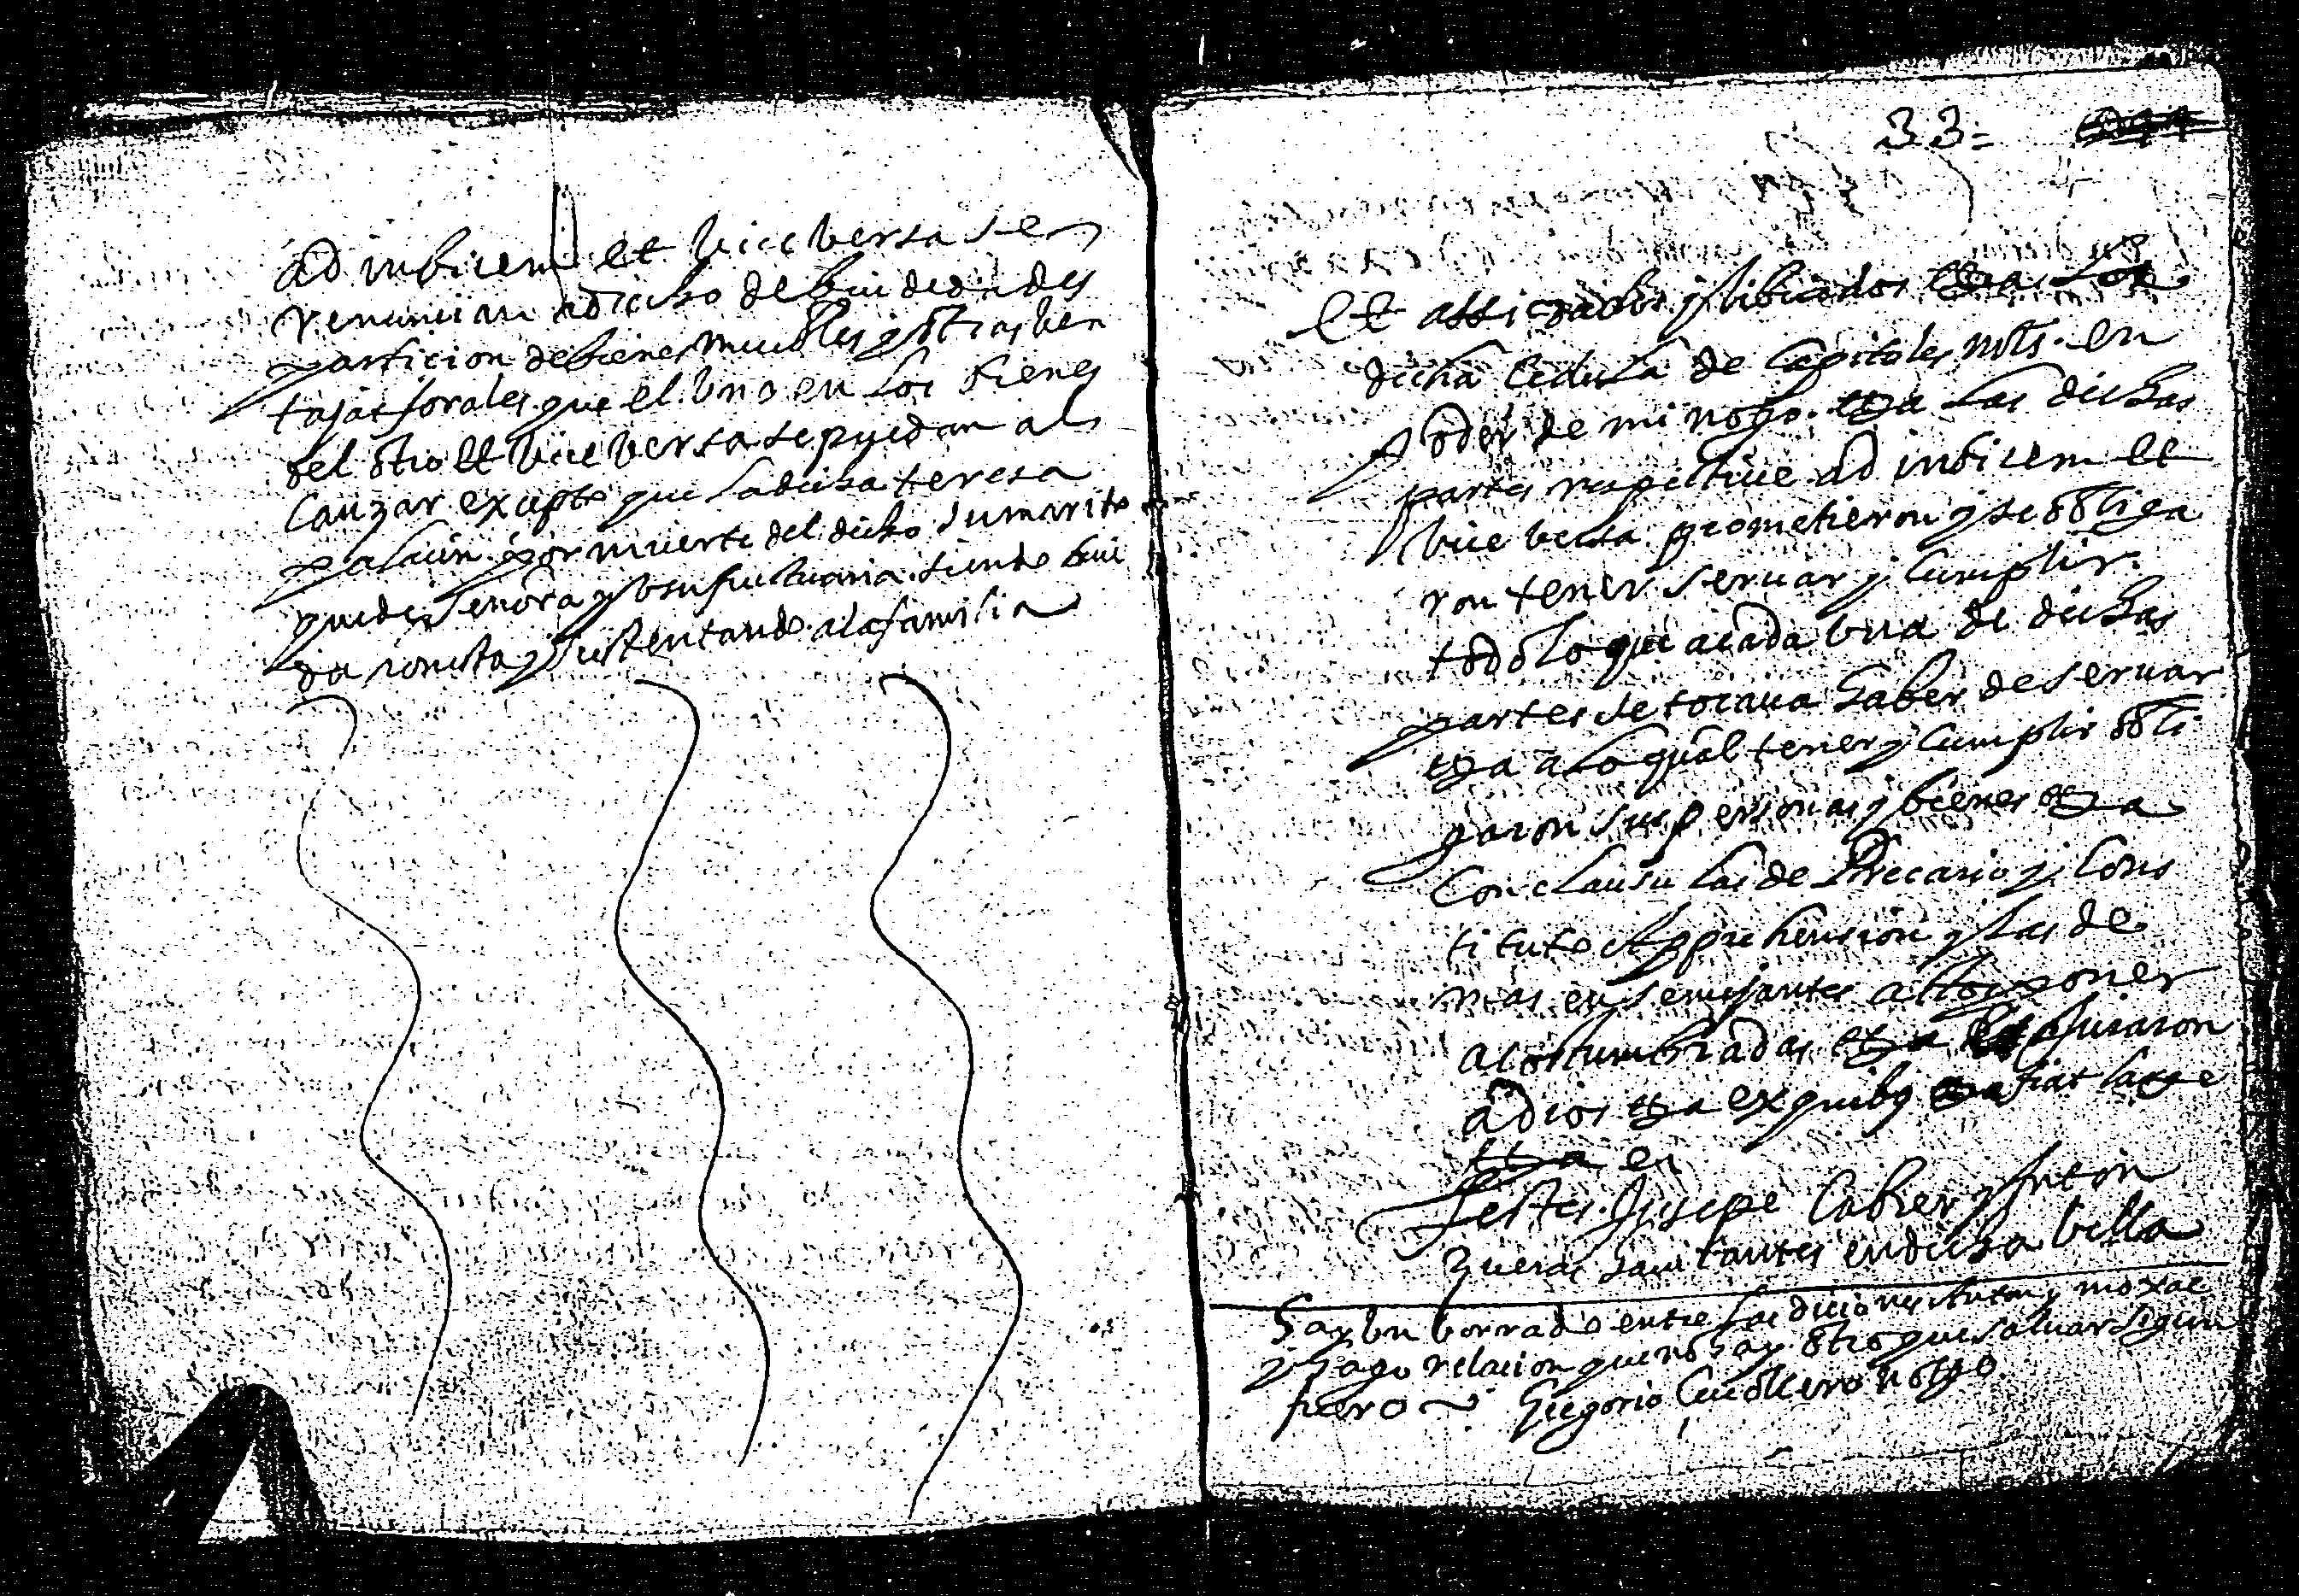 ad inbicem et bice bersa se
renuncian adicho de biudedades
particion de bienes muebles y otras ben
tajas forales que el uno en los bienes
del otro et bice bersa se puedan al
canzar excepto que la dicha teresa
palacin por muerte del dicho su marito
quede señora y usufructuaria siendo biu
da onesta y sustentando a la familia
33=
Et assi dados y librados
dicha cedula de capitoles mts. en
poder de mi noto. etta las dichas
partes respectiue ad inbicem et
bice bersa prometieron y se obliga
ron tener seruar y cumplir
todo lo que a cada una de dichas
partes se tocaua haber de seruar
etta a lo qual tener y cumplir obli
garon sus personas y bienes etta
con clausulas de Precario y cons
tituto Apprehension y las de
mas en semejantes actos poner
acostumbradas etta juraron
a dios etta ex quibus etta fiat large
etta
Testes Jusepe Cabrer y Anton
Zueras hauitantes en dicha billa
Hay un borrado entre las diciones Anton y
y hago relacion que no hay otro que saluar segun
fuero Gregorio notto